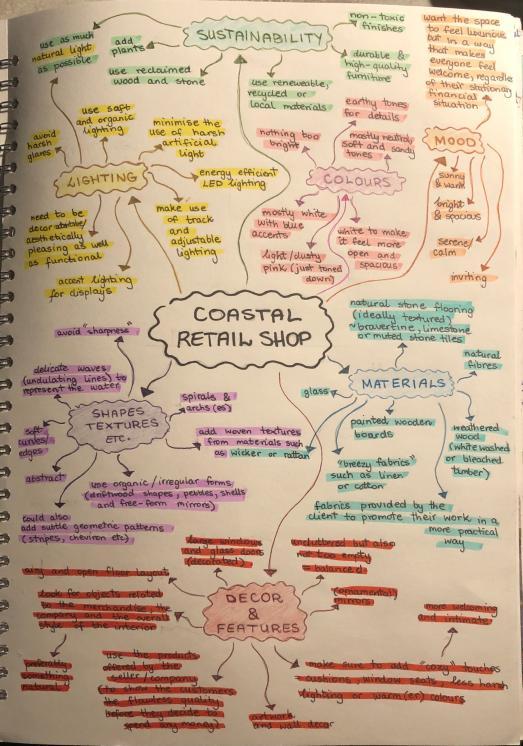 SUSTAINABILITY
use as much
natural light
as possible
add
plants
use reclaimed
wood and stone
use renewable,
recycled or
local materials
non-toxic
finishes
durable &
high-quality
furniture
want the space
to feel luxurious
but in a way
that makes
everyone feel
welcome, regardless
of their
financial
situation
MOOD
sunny
& warm
bright
& spacious
serene/
calm
inviting
LIGHTING
avoid
harsh
glares
use soft
and organic
lighting
minimise the
use of harsh
artificial
light
energy efficient
LED lighting
make use
of track
and
adjustable
lighting
need to be
decorative/
aesthetically
pleasing as well
as functional
accent lighting
for displays
COLOURS
earthy tones
for details
nothing too
bright
mostly neutral,
soft and sandy
tones
mostly white
with blue
accents
light/dusty
pink (just toned
down)
white to make
it feel more
open and
spacious
COASTAL
RETAIL SHOP
MATERIALS
natural stone flooring
(ideally textured)
travertine, limestone
or muted stone tiles
natural
fibres
glass
painted wooden
boards
weathered
wood
(white washed
or bleached
timber)
"breezy fabrics"
such as linen
or cotton
fabrics provided by the
client to promote their work in a
more practical
way
SHAPES
TEXTURES
ETC.
avoid "sharpness"
delicate waves
(undulating lines) to
represent the water
spirals &
archs(es)
soft
curves/
edges
add woven textures
from materials such
as wicker or rattan
abstract
use organic/irregular forms
(driftwood shapes, pebbles, shells
and free-form mirrors)
could also
add subtle geometric patterns
(stripes, chevron etc)
DECOR
&
FEATURES
large windows
and glass doors
(decorated)
uncluttered but also
not too empty
= balanced
airy and open floor layout
look for objects related
to the merchandise, the
company and the overall
style of the interior
(ornamental)
mirrors
more welcoming
and intimate
preferably
something
natural
use the products
offered by the
seller/company
(to show the customers
the flawless quality
before they decide to
spend any money)
artwork
and wall decor
make sure to add "cozy" touches
- cushions, window seats, less harsh
lighting or warm(er) colours